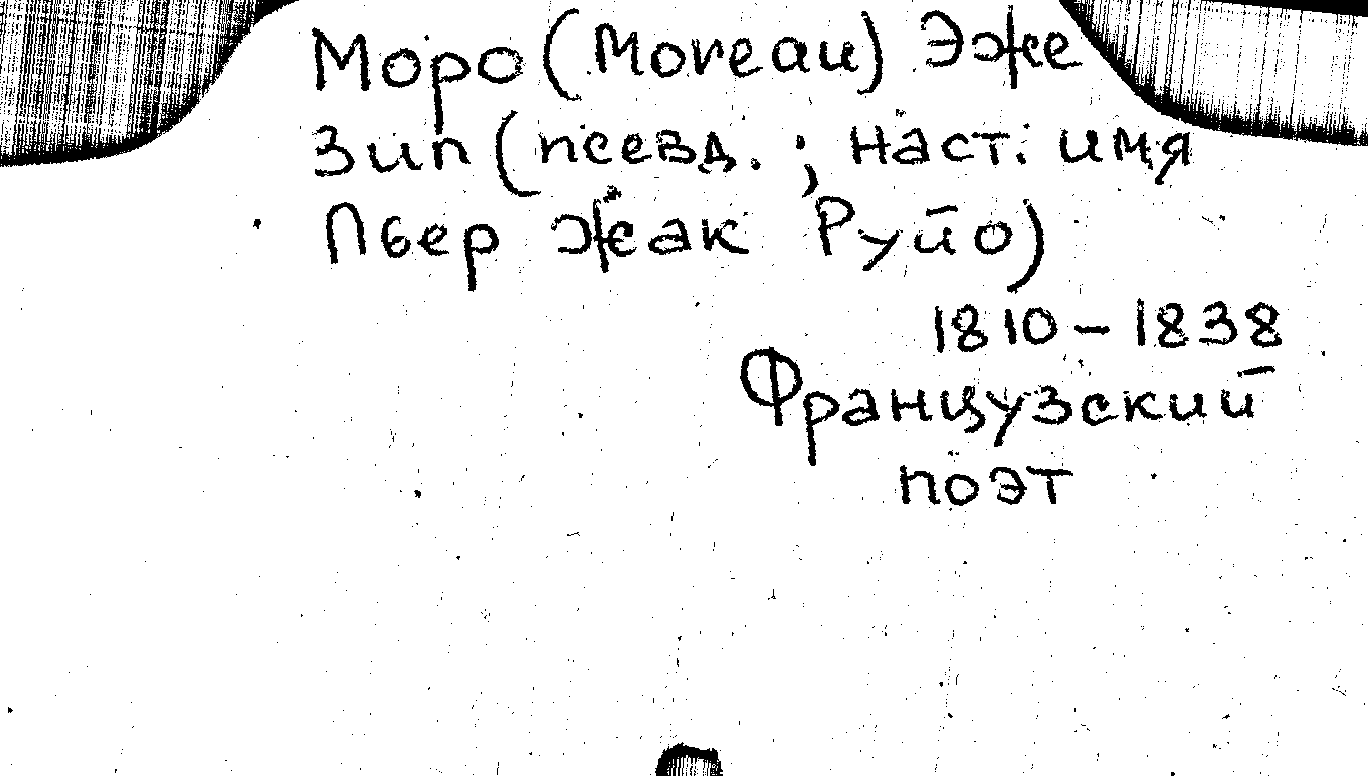 Моро (Moreau) Эже
зип (псевд.; наст. имя
Пьер Жак Руйо)
1810-1838
Французский
поэт